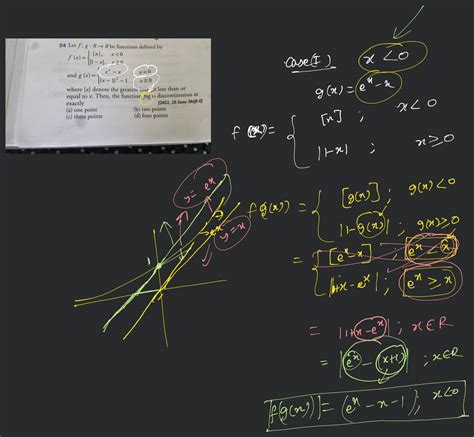 24 Let f, g : R → R be functions defined by
f(x) = { [x], x < 0
|1 − x|, x ≥ 0
and g(x) = { e^x − x, x < 0
(x − 1)^2 − 1, x ≥ 0
where [x] denotes the greatest less than or
equal to x. Then, the function fog is discontinuous at
exactly
(a) one point (b) two points
(c) three points (d) four points
Case(I) x < 0
g(x) = e^x − x
f(x) = { [x] ; x < 0
|1−x| ; x ≥ 0
y = e^x
y = x
f(g(x)) = { [g(x)] ; g(x) < 0
|1−g(x)| ; g(x) ≥ 0
= { [e^x − x] ; e^x < x
|1+x − e^x| ; e^x ≥ x
= |1+x − e^x| ; x∈R
= |e^x − (x+1)| ; x∈R
f(g(x)) = (e^x − x − 1) ; x < 0